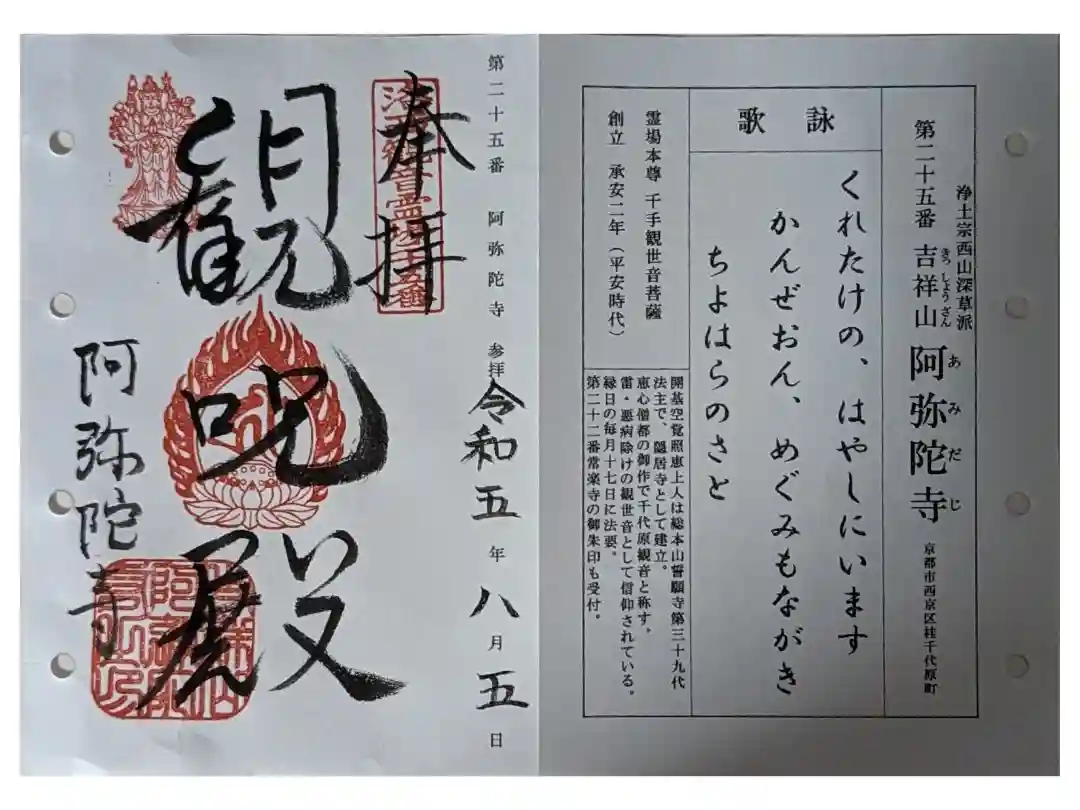 浄土宗西山深草派
第二十五番 吉祥山 阿弥陀寺 京都市西京区桂千代原町
きっしょうざん あみだじ
詠歌
くれたけの、はやしにいます
かんぜおん、めぐみもながき
ちよはらのさと
霊場本尊 千手観世音菩薩
創立 承安二年(平安時代)
開基空覚照恵上人は総本山誓願寺第三十九代
法主で、隠居寺として建立。
恵心僧都の御作で千代原観音と称す。
雷・悪病除けの観世音として信仰されている。
縁日の毎月十七日に法要。
第二十二番常楽寺の御朱印も受付。
第二十五番 阿弥陀寺 参拝 令和五年八月五日
奉拝
洛西観音霊場
観呪殿
阿弥陀寺